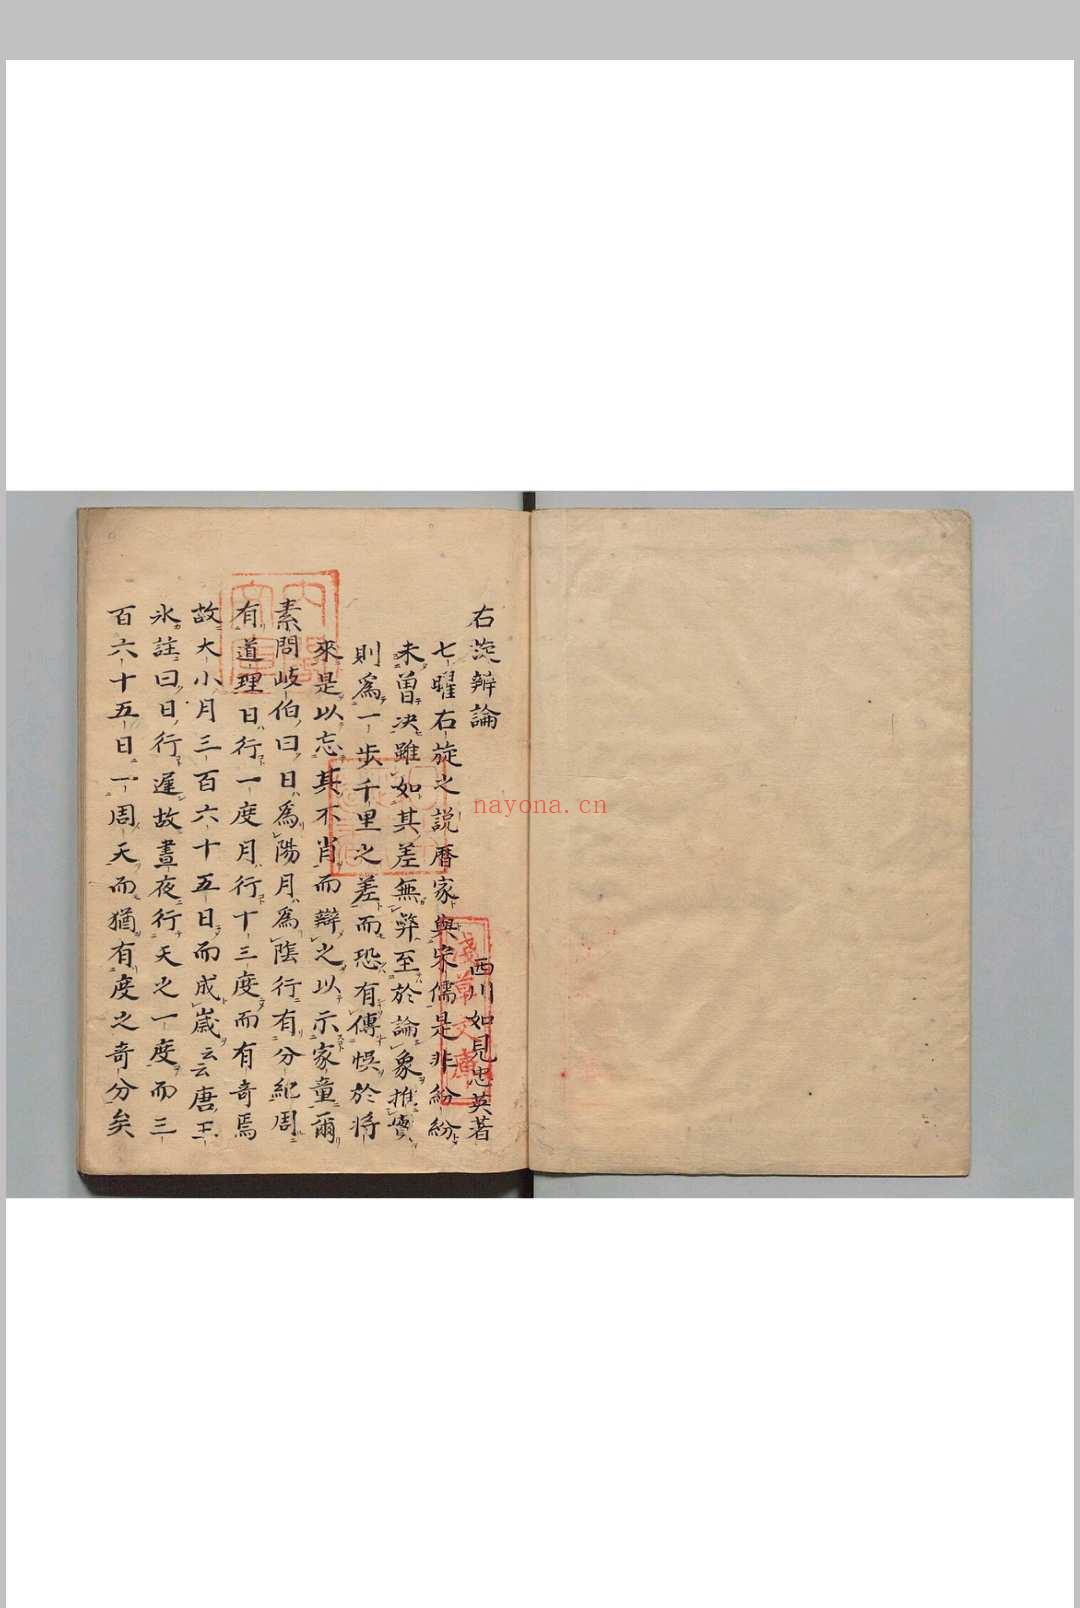 右旋辯論
西川如見忠英著
七曜右旋之説曆家與宋儒是非紛紛
未曽决雖如其差無弊至於論象推實
則爲一歩千里之差而恐有傳悞於將
來是以忘其不肖而辯之以示家童爾
素問岐伯曰日爲陽月爲陰行有分紀周
有道理日行一度月行十三度而有奇焉
故大小月三百六十五日而成嵗云云唐王
氷註曰日行遲故晝夜行天之一度而三
百六十五日一周天而猶有度之奇分矣
内閣文庫
淺草文庫
nayona.cn